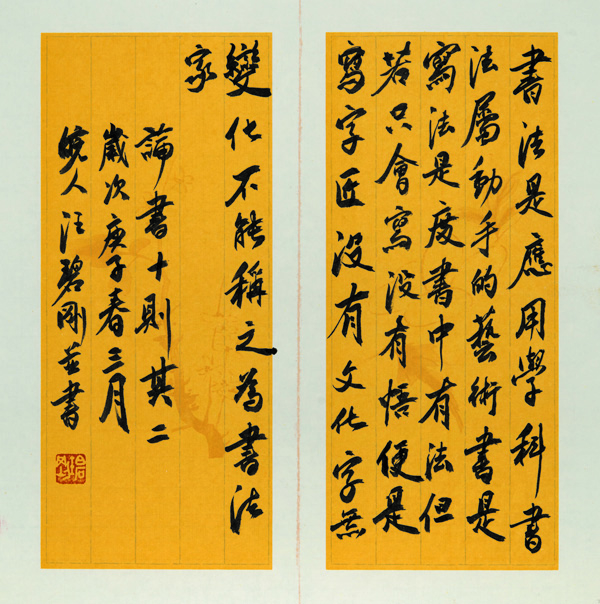 書法是應用學科書
法屬動手的藝術書是
寫法是度書中有法但
若只會寫沒有悟便是
寫字匠沒有文化字無
變化不能稱之為書法
家
論書十則其二
歲次庚子春三月
皖人汪碧剛並書